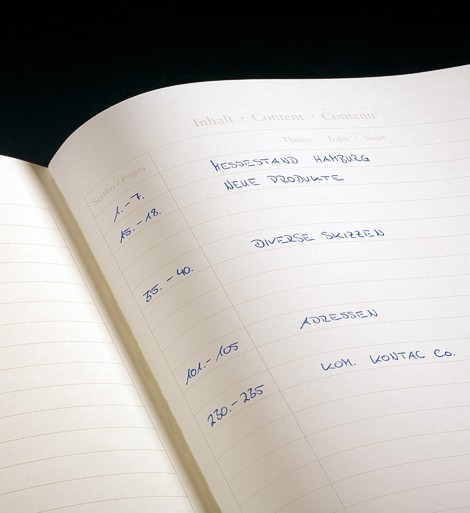 Inhalt · Content · Contenu
Seiten / Pages Thema · Topic · Sujet
1.-7. MESSESTAND HAMBURG
15.-18. NEUE PRODUKTE
35.-40. DIVERSE SKIZZEN
101.-105 ADRESSEN
230.-235 KOM. KONTAC CO.